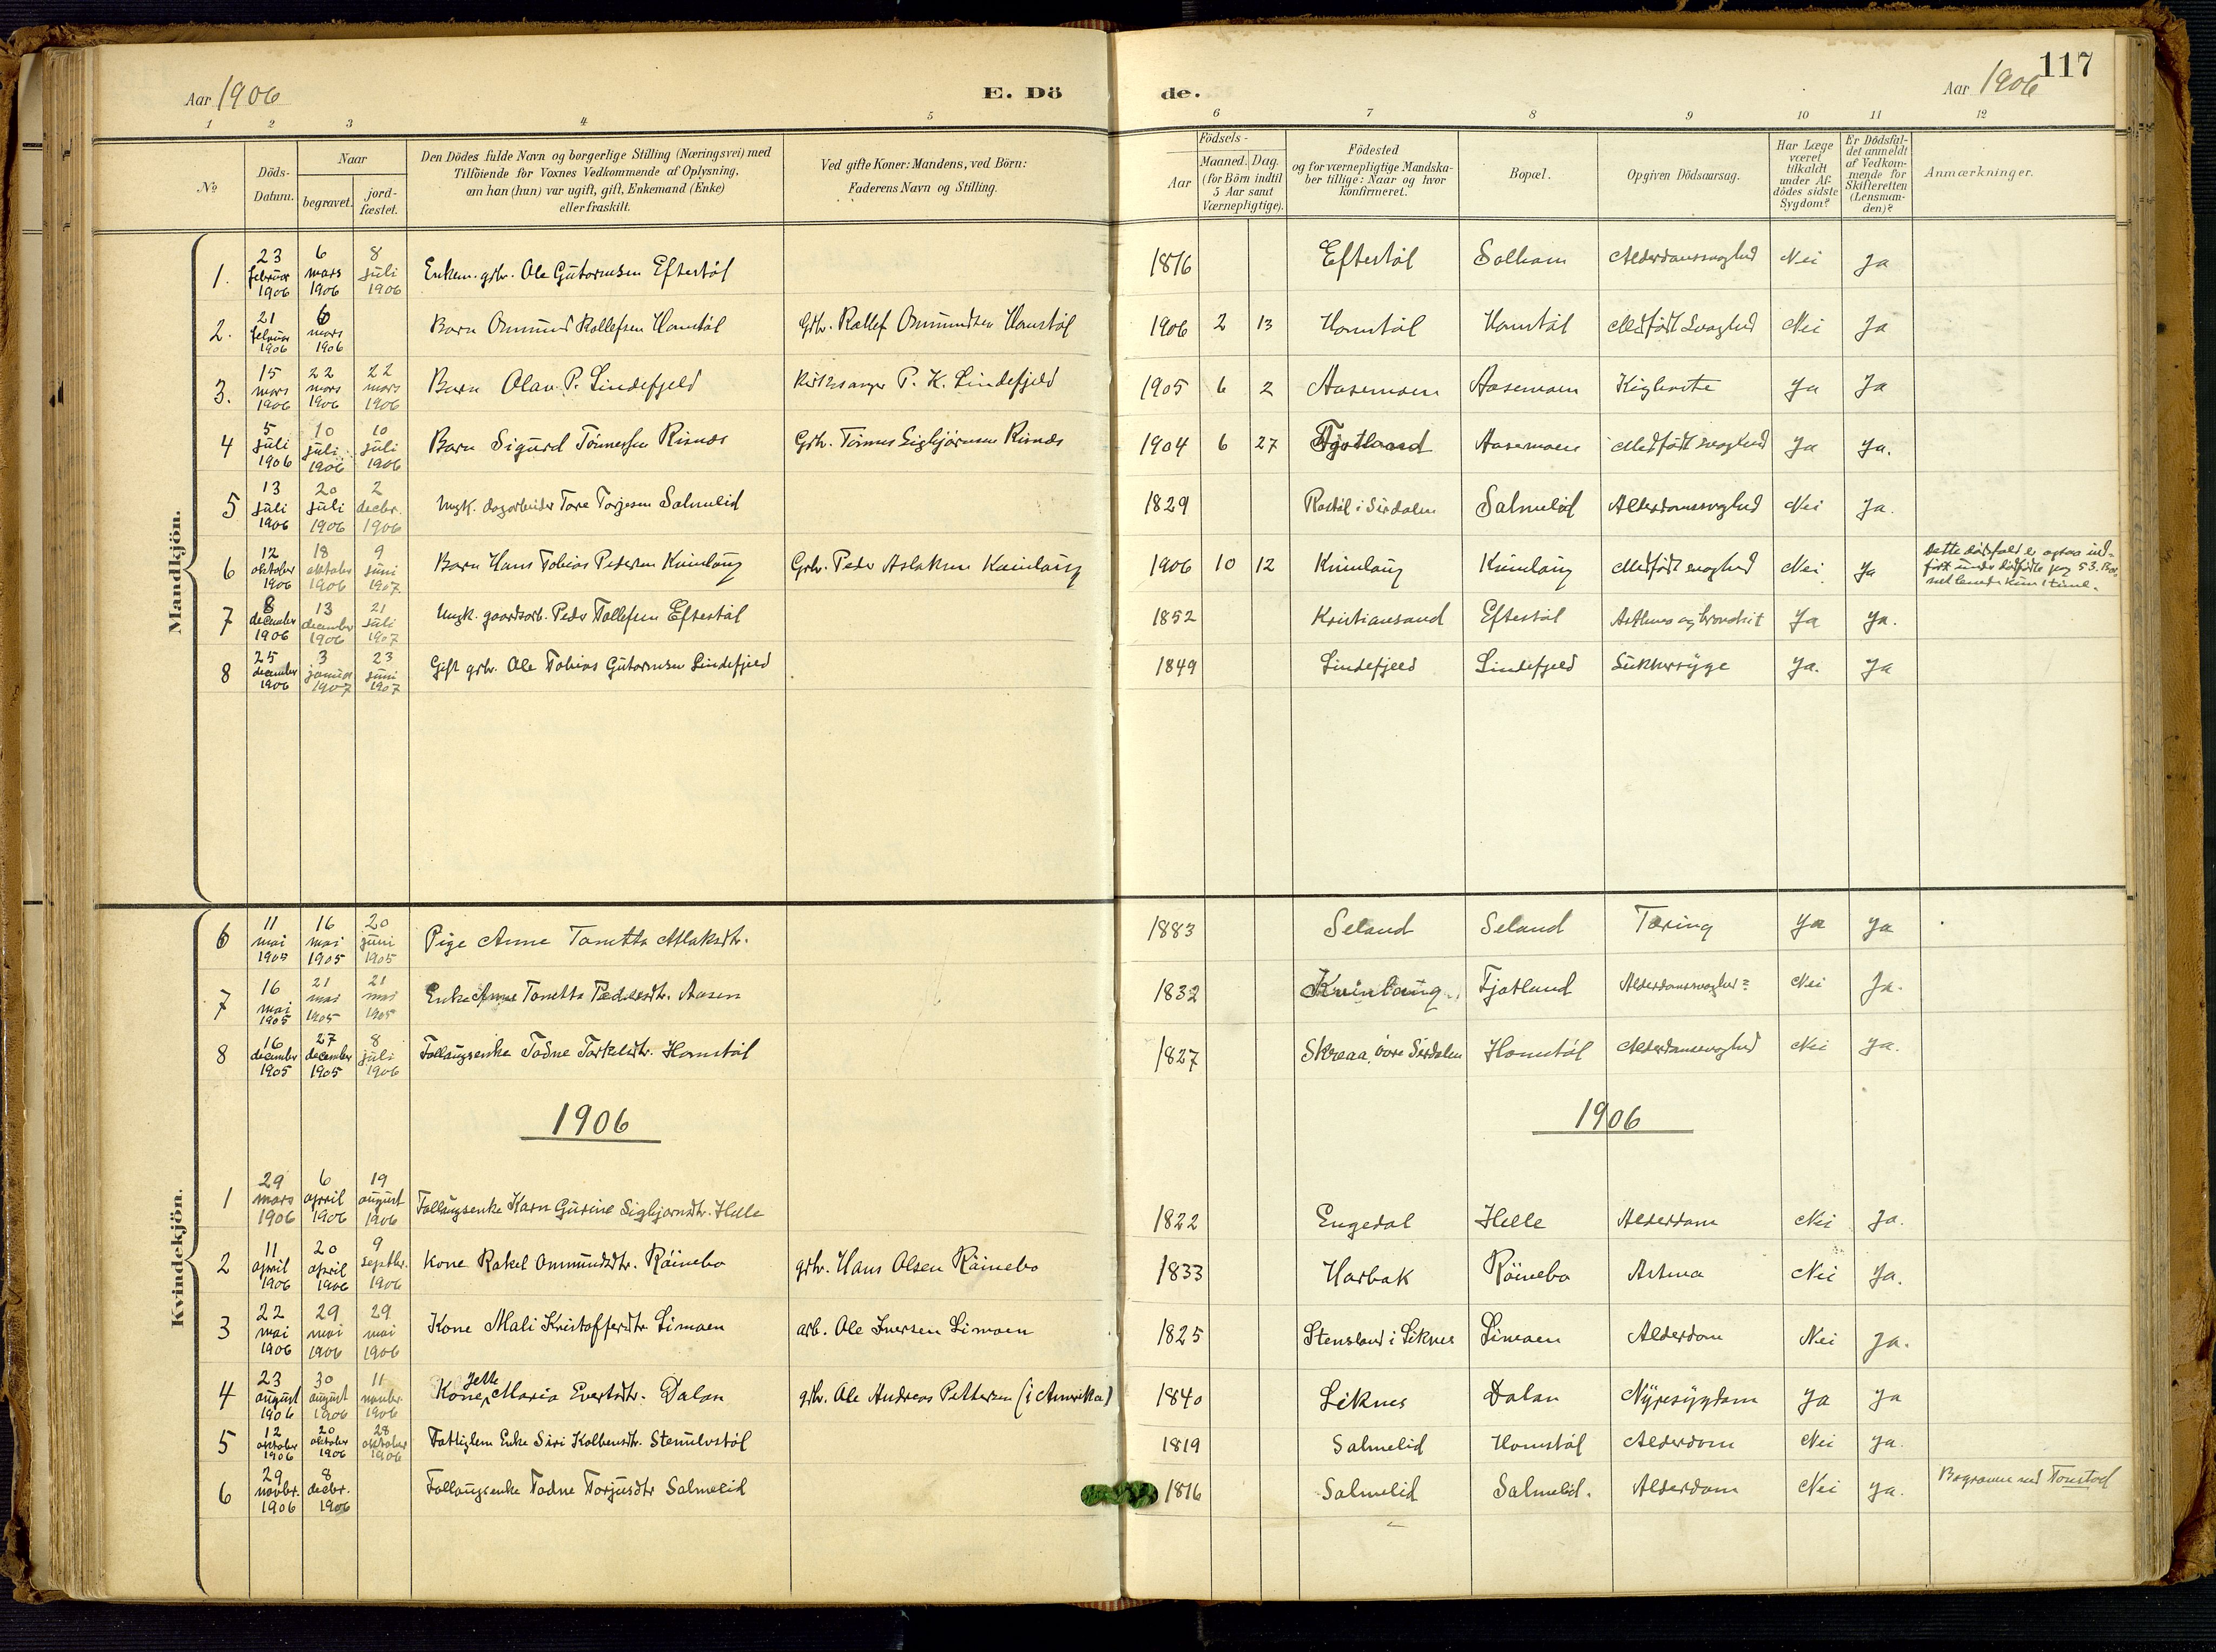 117
Aar 1906
E. Dö
de.
Aar 1906
1 2 3 4 5 6 7 8 9 10 11 12
No
Döds-
Datum.
Naar
begravet.
jord-
fæstet.
Den Dödes fulde Navn og borgerlige Stilling (Næringsvei) med
Tilföiende for Voxnes Vedkommende af Oplysning,
om han (hun) var ugift, gift, Enkemand (Enke)
eller fraskilt.
Ved gifte Koner: Mandens, ved Börn:
Faderens Navn og Stilling.
Födsels-
Aar
Maaned. Dag.
(for Börn indtil
5 Aar samt
Værnepligtige).
Födested
og for værnepligtige Mandska-
ber tillige: Naar og hvor
konfirmeret.
Bopæl.
Opgiven Dödsaarsag.
Har Læge
været
tilkaldt
under Af-
dödes sidste
Sygdom?
Er Dödsfal-
det anmeldt
af Vedkom-
mende for
Skifteretten
(Lensman-
den)?
Anmærkninger.
Mandkjön.
1. 23 februar 1906 6 mars 1906 8 juli 1906 Enkem. gbr. Ole Gutormsen Eftestöl 1816 Eftestöl Solheim Alderdomssvaghed Nei Ja
2. 21 februar 1906 6 mars 1906 Barn Ommund Rollefsen Homstöl Gbr. Rollef Ommundsen Homstöl 1906 2 13 Homstöl Homstöl Medfödt Svaghed Nei Ja
3. 15 mars 1906 22 mars 1906 22 mars 1906 Barn Olav P. Lindefjeld Kirkesanger P. K. Lindefjeld 1905 6 2 Aasemoen Aasemoen Kighoste Ja Ja
4 5 juli 1906 10 juli 1906 10 juli 1906 Barn Sigurd Tönnessen Risnes Gbr. Tönnes Sigbjörnsen Risnes 1904 6 27 Fjotland Aasemoen Medfödt svaghed Ja Ja.
5 13 juli 1906 20 juli 1906 2 decbr. 1906 Ungk. dagarbeider Tore Torjesen Salmelid 1829 Rostöl i Sirdalen Salmelid Alderdomssvaghed Nei Ja.
6 12 oktober 1906 18 oktober 1906 9 juni 1907 Barn Hans Tobias Pedersen Kvinlaug Gbr. Peder Aslaksen Kvinlaug 1906 10 12 Kvinlaug Kvinlaug Medfödt svaghed Nei Ja Dette dödsfald er ogsaa ind-
fört under dödfödte pag 53. Bar-
net levede kun 1 time.
7 8 december 1906 13 december 1906 21 juli 1907 Ungk. gaardsarb. Peder Tollefsen Eftestöl 1852 Kristiansand Eftestöl Asthma og bronchit Ja Ja.
8 25 december 1906 3 januar 1907 23 juni 1907 Gift gbr. Ole Tobias Gutormsen Lindefjeld 1849 Lindefjeld Lindefjeld Sukkersyge Ja. Ja
Kvindekjön.
6 11 mai 1905 16 mai 1905 20 juni 1905 Pige Anne Tonette Aslaksdtr. 1883 Seland Seland Tæring Ja Ja
7 16 mai 1905 21 mai 1905 21 mai 1905 Enke Anne Tonette Pedersdtr. Aasen 1832 Kvinlaug Fjotland Alderdomssvaghed Nei Ja.
8 16 december 1905 27 december 1905 8 juli 1906 Follaugsenke Todne Torkelsdtr. Homstöl 1827 Skreaa, övre Sirdalen Homstöl Alderdomssvaghed Nei Ja.
1906 1906
1 29 mars 1906 6 april 1906 19 august 1906 Follaugsenke Karn Gurine Sigbjornsdtr. Helle 1822 Engedal Helle Alderdom Nei Ja.
2 11 april 1906 20 april 1906 9 septbr. 1906 Kone Rakel Ommundsdtr. Röinebo gbr. Hans Olsen Röinebo 1833 Harbak Röinebo Astma Nei Ja.
3 22 mai 1906 29 mai 1906 29 mai 1906 Kone Mali Kristoffersdtr Limoen arb. Ole Iversen Limoen 1825 Stensland i Liknes Limoen Alderdom Nei Ja.
4 23 august 1906 30 august 1906 11 novbr. 1906 Kone Jette Maria Evertsdtr. Dalen gbr. Ole Andreas Pettersen (i Amerika) 1840 Liknes Dalen Nyresygdom Ja Ja
5 12 oktober 1906 20 oktober 1906 28 oktober 1906 Fattiglem Enke Siri Kolbensdtr. Stemlestöl 1819 Salmelid Homstöl Alderdom Nei Ja.
6 29 novbr. 1906 8 decbr. 1906 Follaugsenke Todne Torjusdtr Salmelid 1816 Salmelid Salmelid. Alderdom Nei Ja. Begraven ved Tonstad